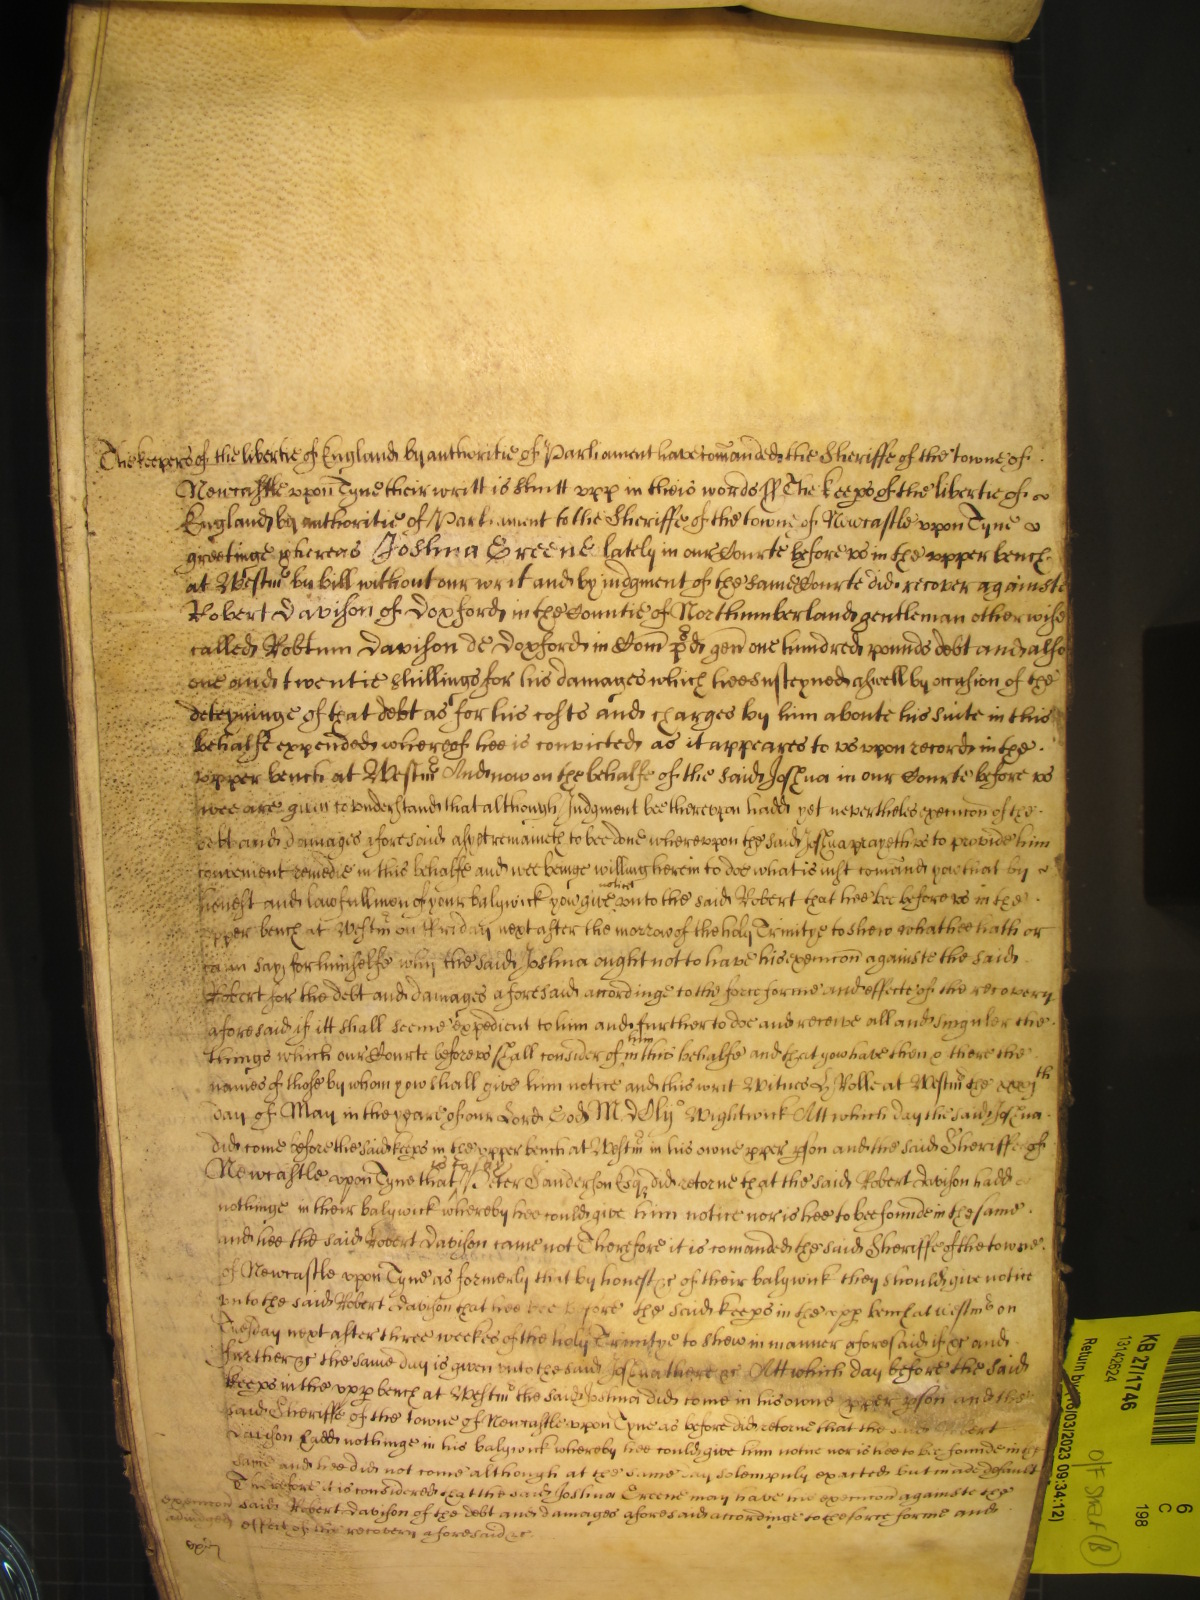 The keepers of the libertie of England by authoritie of Parliament have comanded the Sheriffe of the towne of
Newcastle upon Tyne their writt is shutt upp in theis words ss The keeps of the libertie of
England by authoritie of Parliament to the Sheriffe of the towne of Newcastle uppon Tyne
greetinge whereas Joshua Greene lately in our Courte before us in the upper bench
at Westm by bill without our writ and by iudgment of the same Courte did recover againste
Robert Davison of Doxford in the Countie of Northumberland gentleman otherwise
called Robtum Davison de Doxford in Com pd gen one hundred pounds debt and also
one and twentie shillings for his damages which hee susteyned aswell by occasion of the
deteyninge of that debt as for his costs and charges by him aboute his suite in this
behalfe expended whereof hee is convicted as it appeares to us upon record in the
upper bench at Westm And now on the behalfe of the said Joshua in our Courte before us
wee are given to understand that although Judgment bee thereupon hadd yet nevertheles execucon of the
debt and damages aforesaid as yet remaineth to bee done whereupon the said Joshua prayeth us to provide him
convenient remedie in this behalfe and wee beinge willing herein to doe what is iust comand you that by
honest and lawfull men of your balywick you give notice unto the said Robert that hee bee before us in the
upper bench at Westm on Friday next after the morrow of the holy Trinitye to shew what hee hath or
cann say for himselfe why the said Joshua ought not to have his execucon againste the said
Robert for the debt and damages aforesaid accordinge to the force forme and effecte of the recovery
aforesaid if itt shall seeme expedient to him and further to doe and receive all and singuler the
things which our Courte before us shall consider of him in this behalfe and that you have then there the
names of those by whom you shall give him notice and this writ Witnes H Rolle at Westm the xxxjth
day of May in the yeare of our Lord God MDCLIo Wightwick Att which day the said Joshua
did come before the said keeps in the upper bench at Westm in his owne pper pson and the said Sheriffe of
Newcastle upon Tyne that is to say Peter Sanderson Esq did retorne that the said Robert Davison hadd
nothinge in their balywick whereby hee could give him notice nor is hee to bee founde in the same
and hee the said Robert Davison came not Therefore it is comanded the said Sheriffe of the towne
of Newcastle upon Tyne as formerly that by honest &c of their balywick they should give notice
unto the said Robert Davison that hee bee before the said keeps in the upp bench at Westm on
Tuesday next after three weekes of the holy Trinitye to shew in manner aforesaid if &c and
further &c the same day is given unto the said Joshua there &c Att which day before the said
keeps in the upp bench at Westm the said Joshua did come in his owne pper pson and the
said Sheriffe of the towne of Newcastle uppon Tyne as before did retorne that the said Robert
Davison hadd nothinge in his balywick whereby hee could give him notice nor is hee to bee founde in the
same and hee did not come although at the same day solempnly exacted but made default
Therefore it is considered that the said Joshua Greene may have his execucon againste the
execucon said Robert Davison of the debt and damages aforesaid accordinge to the force forme and
adiudged effect of the recovery aforesaid &c
KB 27/1746
13142624
Return by
10/03/2023 09:34:12)
6
C
198
O/F SHELF (B)